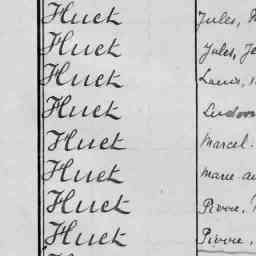 Huet Jules,
Huet Jules, Je
Huet Louis,
Huet Ludov
Huet Marcel.
Huet Marie
Huet Pierre,
Huet Pierre,